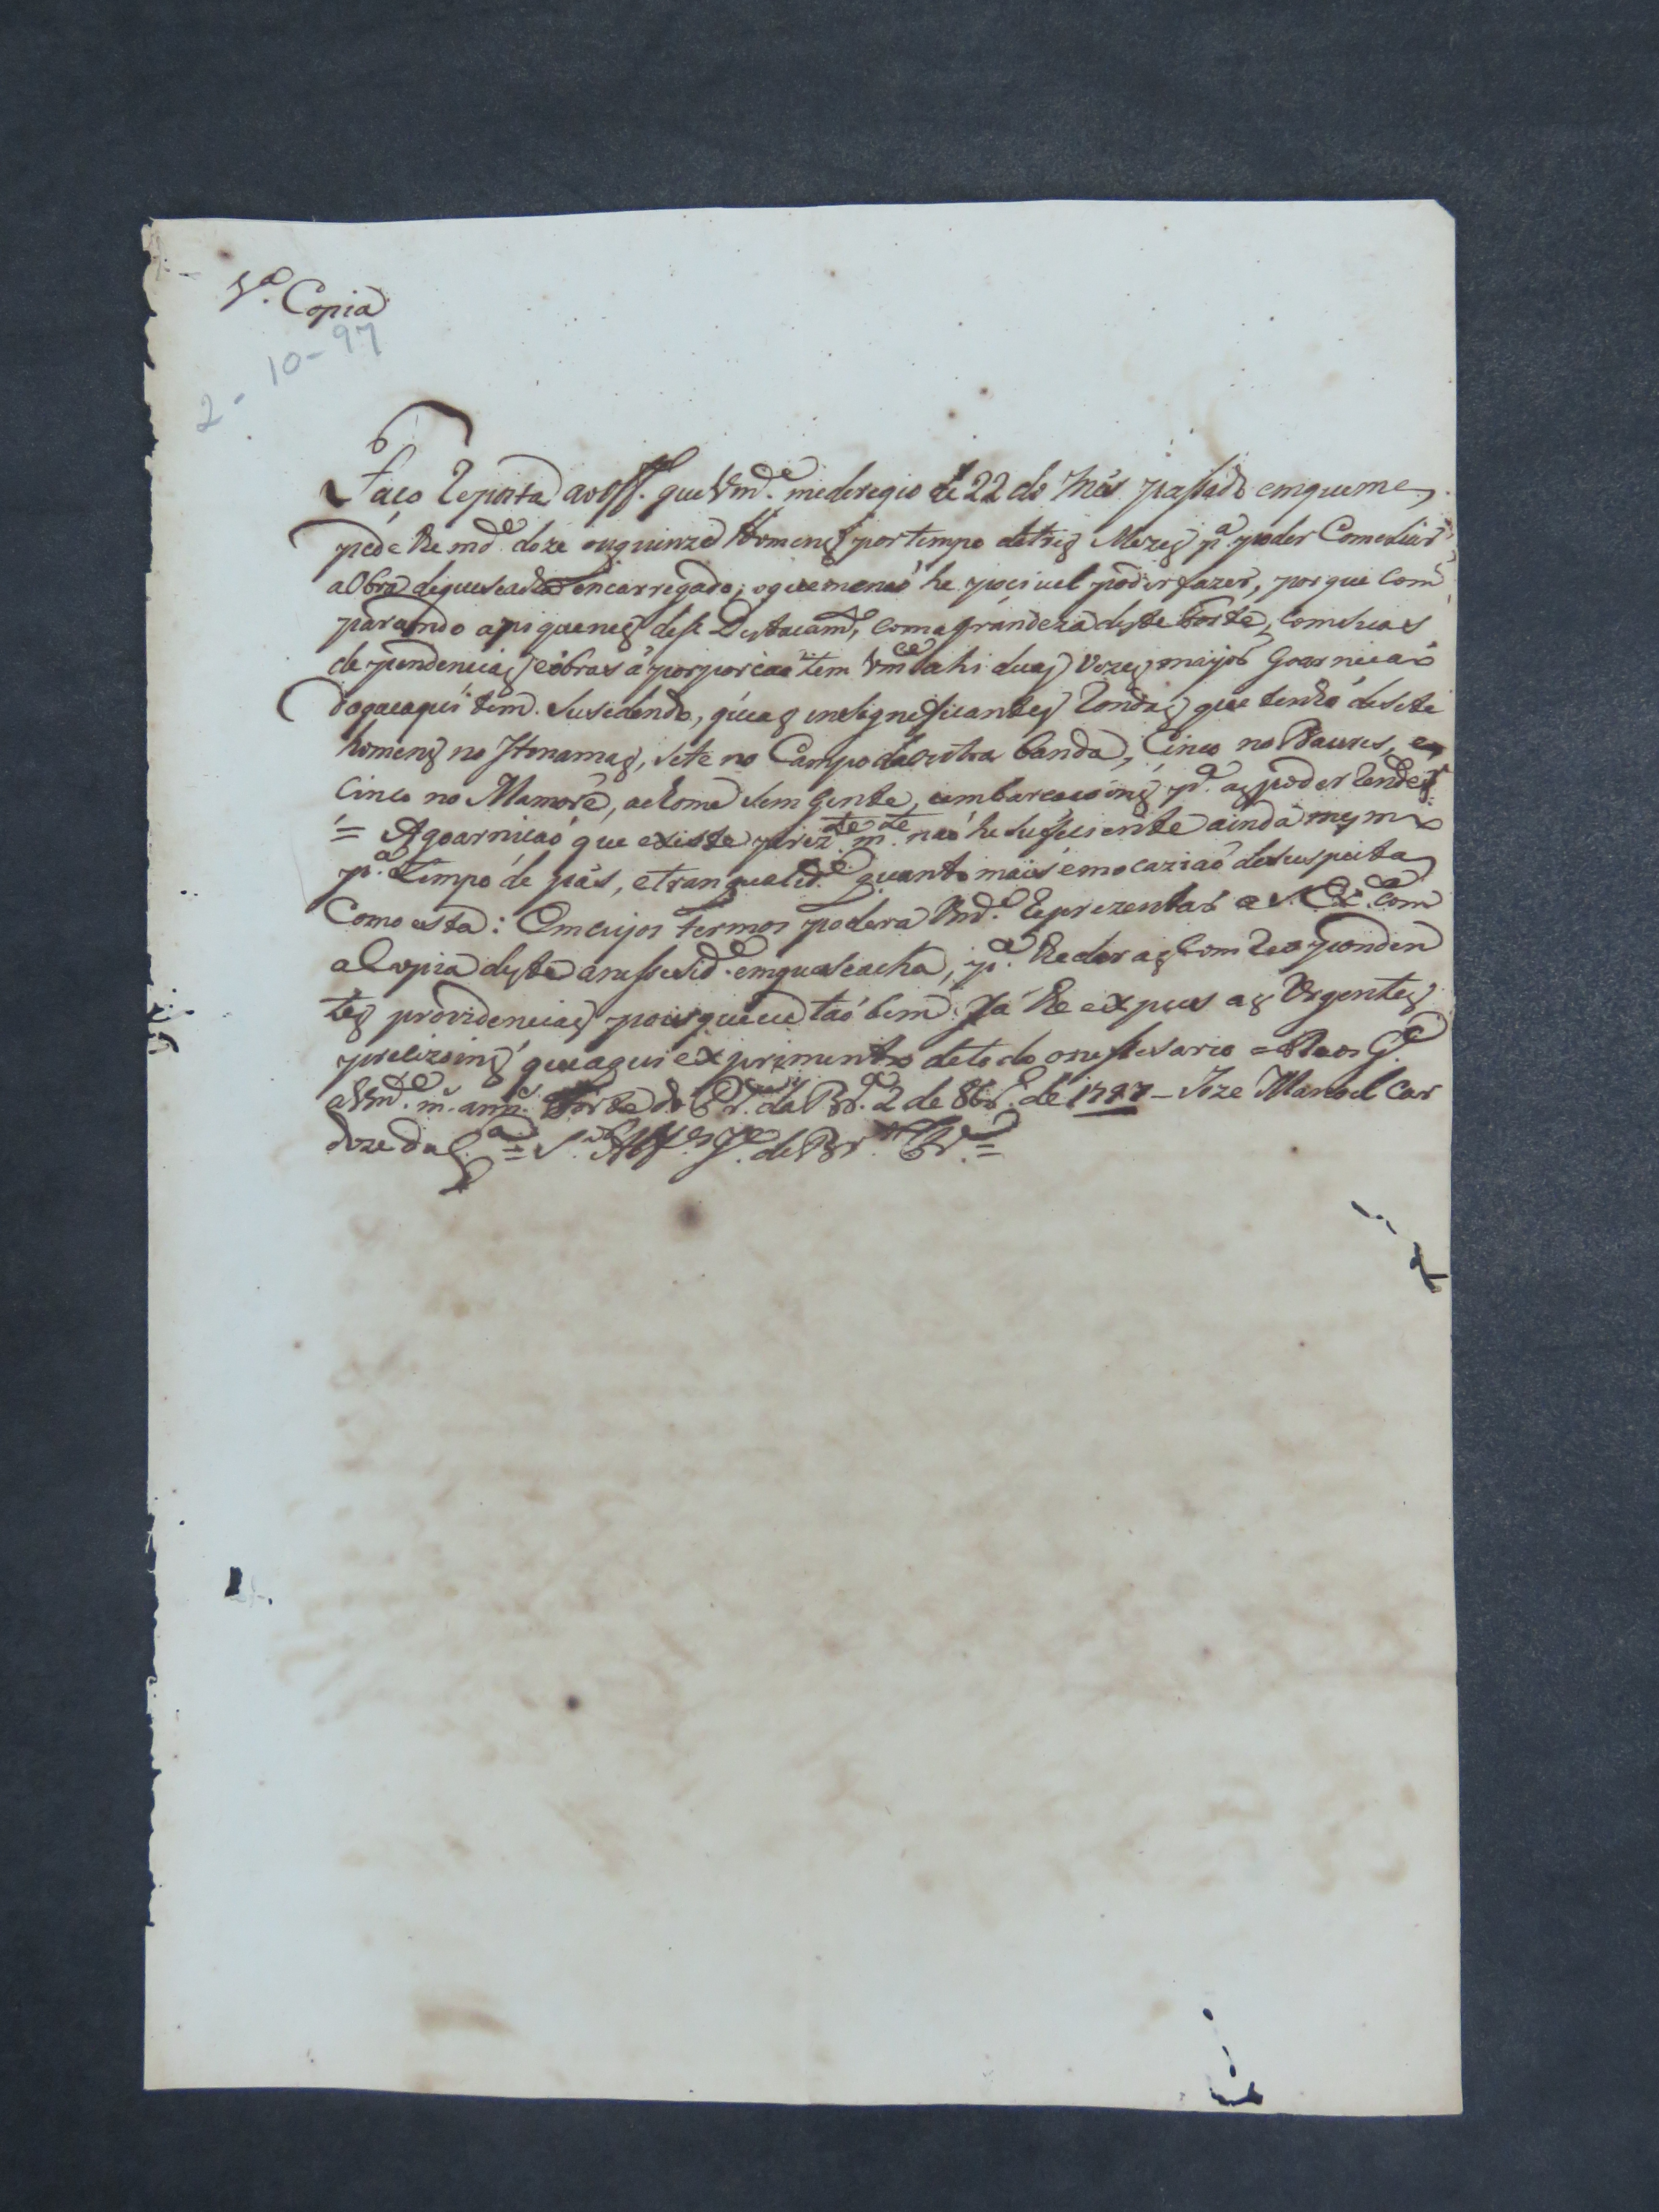 1.ª Copia
2-10-97
Faço Reposta ao off.º que Vmd.e mederegio de 22 do Mês passado emqueme
péde Remd.e doze ouquinze Homens portempo detres Mezes p.ª poder Comcluir
aObra dequeseacha emcarregado; oquemenaó he pocivel poder fazer, porque Com
parando apiquenes dese Destacam.to, comagrandeza deste Forte, comsuas
dependencias eóbras áporporcaó tem Vm.ce ahi duas Vezes mayor Goarnicaó
doqueaqui tem. Susedendo, queas ensignificantes Rondas que tenho desete
homens no Itonamas, sete no Campo daoutra banda, Cinco no Baures, e
Cinco no Mamoré, aestome sem gente, eembarcacóins p.ª as poder Render
= Agoarnicaó que existe prez.te m.te naó hesuficiente ainda mesmo
p.ª tempo de pás, etranqualid.e quantomais emocaziaó desuspeita
Como esta: Emcujos termos podera Vmd.e Reprezentar a S. Ex.ª Com
aCopia deste anessesid.e emqueseacha, p.ª Redar as Comrespondem
tes providencias poisqueeu taó bem Já Re expus as Urgentes
precizoins queaqui exprimento detodo onessesario = Deos G.e
aVmd.e m.s ann.s Forte do Pr.e da Br.ª 2 de 8br.º de 1797 - Joze Manoel Car
dozo da C.ª = S.r Alf.es Fr.co de